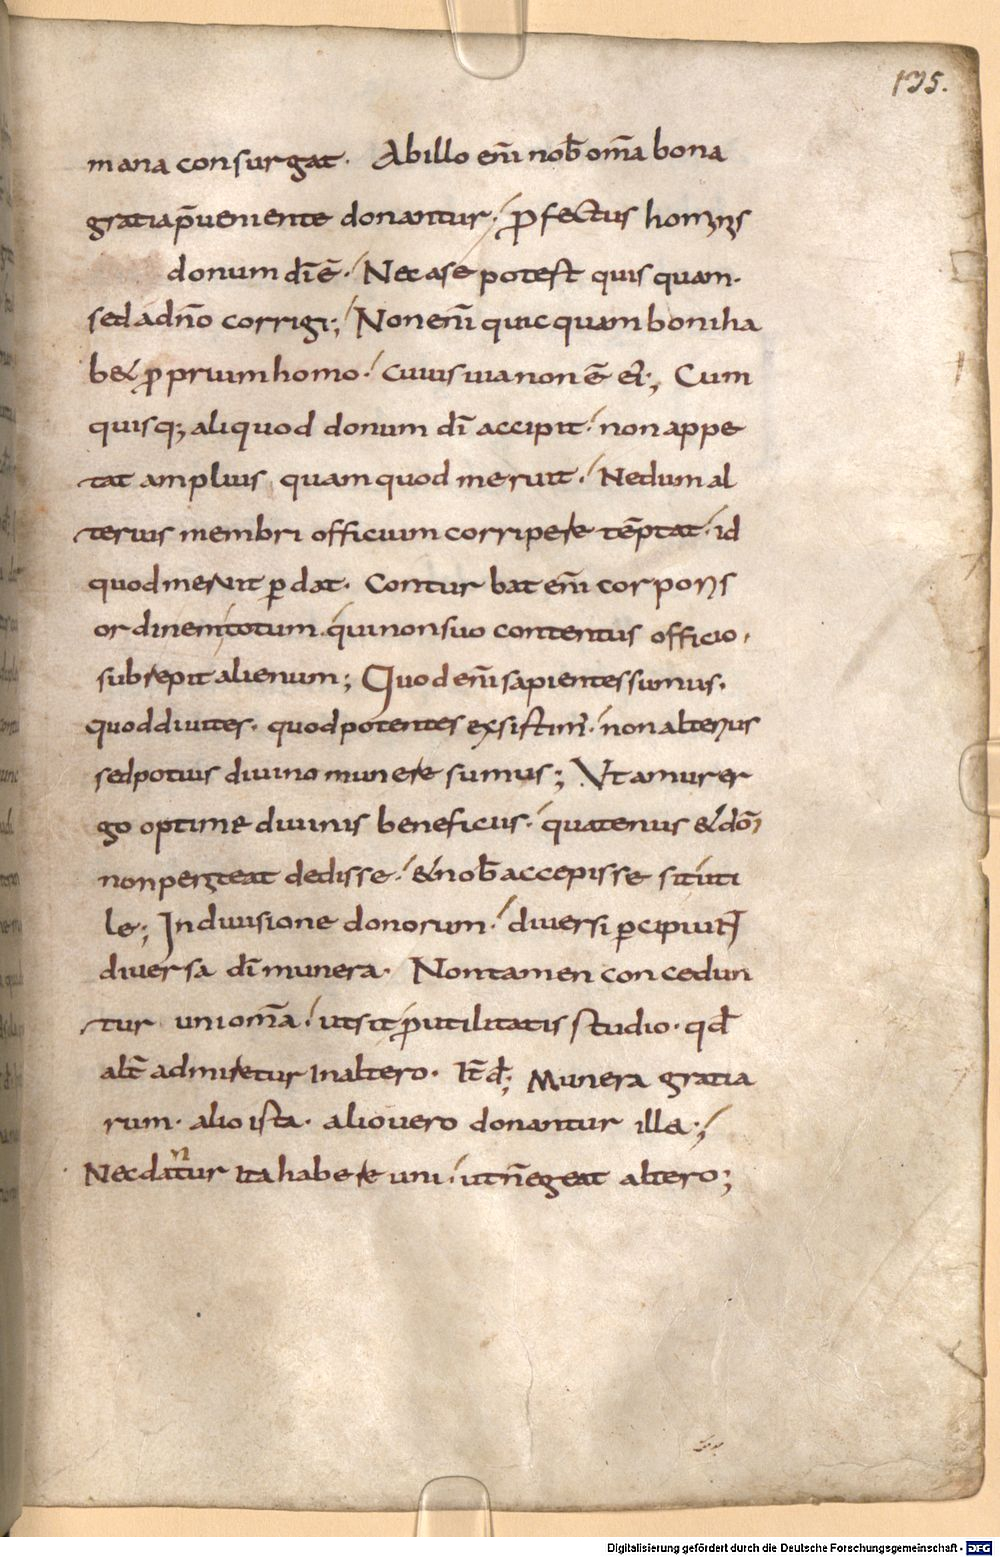 135.
mana consurgat. Abillo eni̅ nob̅ om̅a bona
gratiap̅ueniente donantur. p̅fectus hominis
donum di̅ e̅. Nec ase potest quis quam.
sed adn̅o corrigi; Non eni̅ quicquam boni ha
b& p̅prium homo. cuius uia non e̅ ei̅; Cum
quisq; aliquod donum di̅ accipit. non appe
tat amplius quam quod meruit. Nedum al
terius membri officium corripere te̅ptat. id
quod meruit ꝑdat. Conturbat eni̅ corporis
ordinem totum. qui non suo contentus officio.
subrepit alienum; Quod eni̅ sapientes sumus.
quod diuites. quod potentes exsistim̅. non alterius
sed potius diuino munere sumus; Vtamur er
go optime diuinis beneficiis. quatenus & do̅
non pergteat dedisse. & nob̅ accepisse sit uti
le; In diuisione donorum. diuersi ꝑcipiunt
diuersa di̅ munera. Non tamen concedun
tur uni om̅a. ut sit p̅utilitatis studio. qd̅
alt̅ admiretur In altero. It̅ d̅; Munera gratia
rum. alio ista. alio uero donantur illa;
Nec datnur Ita habere uni. ut n̅ egeat altero;
Digitalisierung gefördert durch die Deutsche Forschungsgemeinschaft - DFG